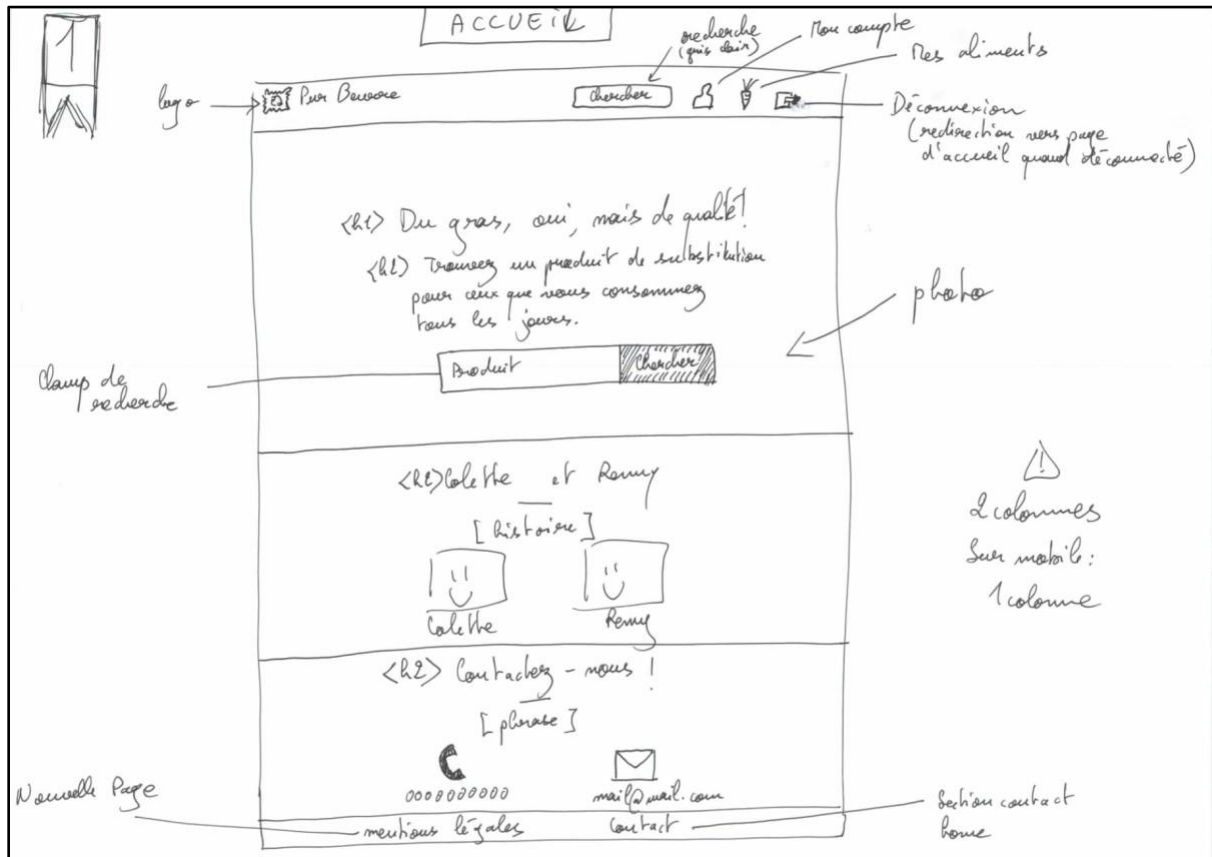 1
ACCUEIL
recherche
(gris clair)
Mon compte
Mes aliments
logo
Pur Beurre
Chercher
Déconnexion
(redirection vers page
d'accueil quand déconnecté)
<h1> Du gras, oui, mais de qualité!
<h2> Trouvez un produit de substitution
pour ceux que vous consommez
tous les jours.
photo
Champ de
recherche
Produit
Chercher
<h2> Colette et Remy
[histoire]
Colette
Remy
2 colonnes
Sur mobile:
1 colonne
<h2> Contactez-nous!
[phrase]
0000000000
mail@mail.com
Nouvelle Page
mentions légales
Contact
Section contact
home